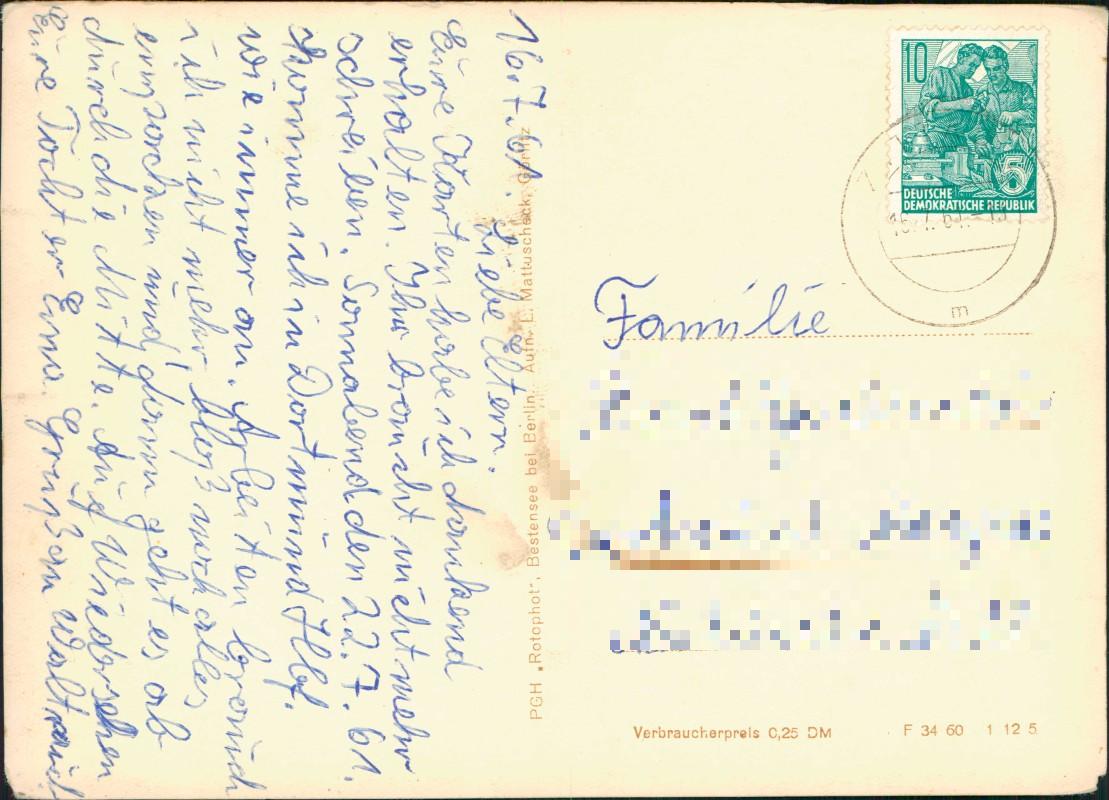 16.7.61.
Liebe Eltern.
Eure Karten habe ich dankend
erhalten. Ihr braucht nicht mehr
schreiben. Sonnabend den 22.7.61.
komme ich in Dortmund Hbf.
wie immer an. Arbeiten brauch
ich nicht mehr, bloß noch alles
und dann geht es ab
durch die Mitte. Auf Wiedersehen
Eure Tochter Erna. Gruß an Waltraud
PGH „Rotophot“, Bestensee bei Berlin, Aufn. L. Mattuscheck, Görlitz
10
5
DEUTSCHE
DEMOKRATISCHE REPUBLIK
16.7.61.-15
m
Familie
Verbraucherpreis 0,25 DM
F 34 60 1 12 5